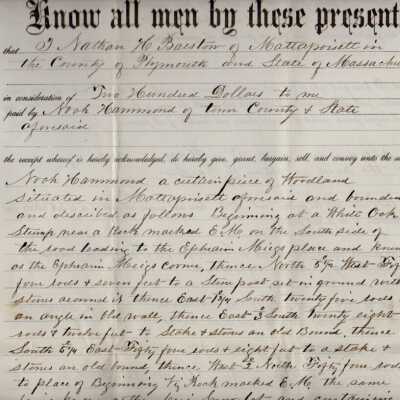 Know all men by these present
that I Nathan H Barstow of Mattapoisett in
the County of Plymouth and State of Massachu
in consideration of Two Hundred Dollars to me
paid by Noah Hammond of town County & State
aforesaid
the receipt whereof is hereby acknowledged, do hereby give, grant, bargain, sell, and convey unto the s
Noah Hammond a certain piece of Woodland
situated in Mattapoisett aforesaid and bounded
and described as follows Beginning at a White Oak
Stump near a Rock marked E.M. on the South side of
the road leading to the Ephraim Meigs place and known
as the Ephraim Meigs corner, thence North 5¾ West Fifty
four rods & seven feet to a Stone post set in ground with
stones around it thence East South twenty five rods
an angle in old wall, thence East South twenty eight
rods & twelve feet to Stake & stones an old Bound, thence
South 5¾ East Fifty four rods & eight feet to a stake &
stones an old bound, thence West North Fifty four rods
to place of Beginning Rock marked E.M. the same